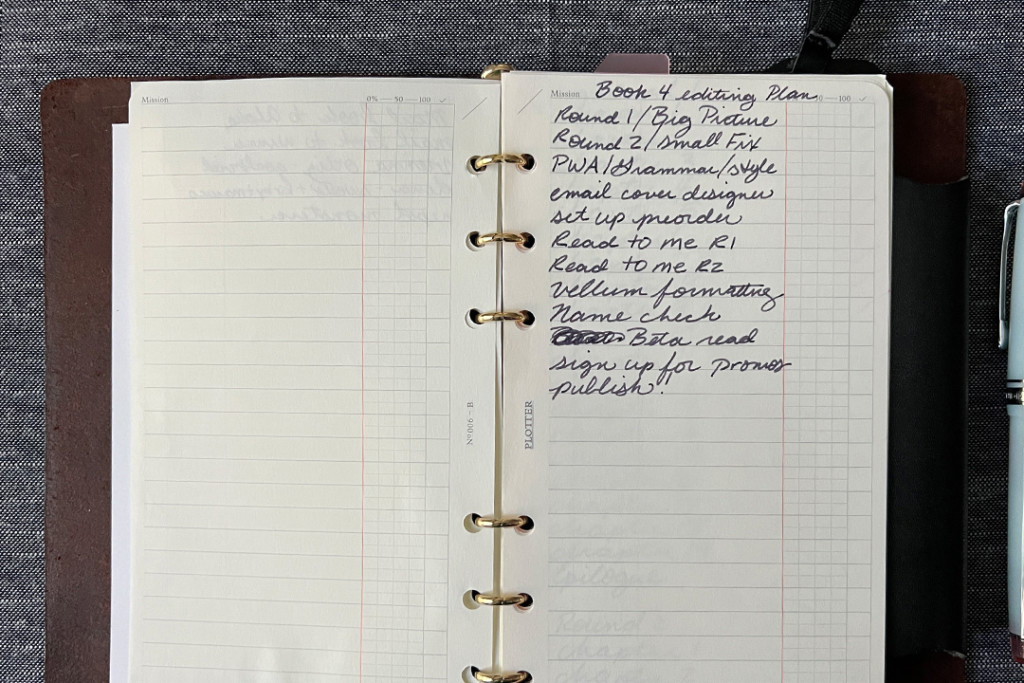 Mission
0% — 50 — 100 ✓
Nº 006 - B
Mission Book 4 editing Plan 50 — 100 ✓
Round 1/Big Picture
Round 2/small Fix
PWA/Grammar/style
email cover designer
set up preorder
Read to me R1
Read to me R2
Vellum formatting
Name check
Beta read
sign up for promos
publish!
PLOTTER